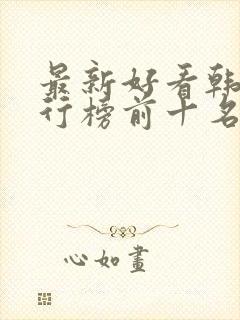 最新好看韩
行榜前十名
心如画